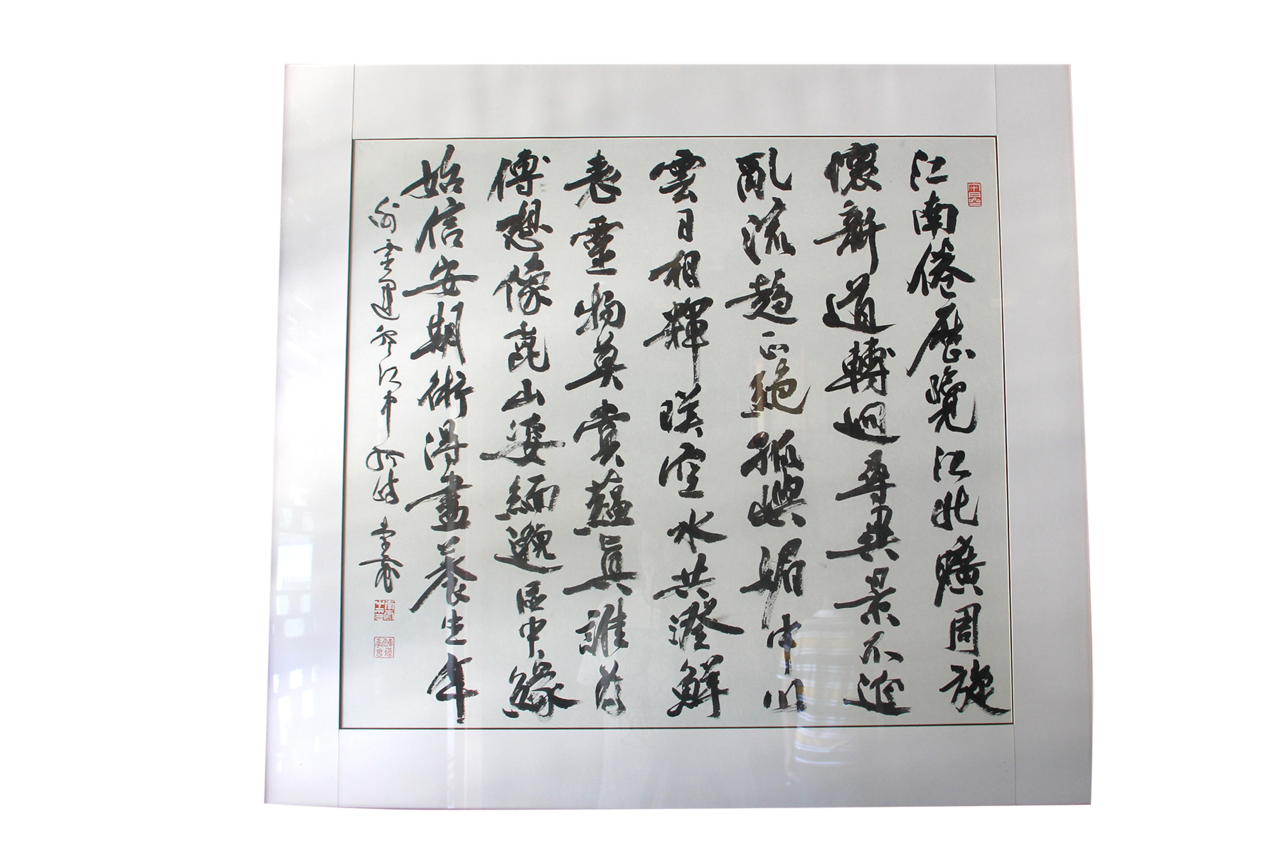 江南倦歷覽江北曠周旋
懷新道轉迥尋異景不延
亂流趨正絕孤嶼媚中川
雲日相輝暎空水共澄鮮
表靈物莫賞蘊眞誰為
傳想像崑山姿緬邈區中緣
始信安期術得盡養生年
謝靈運登江中孤嶼